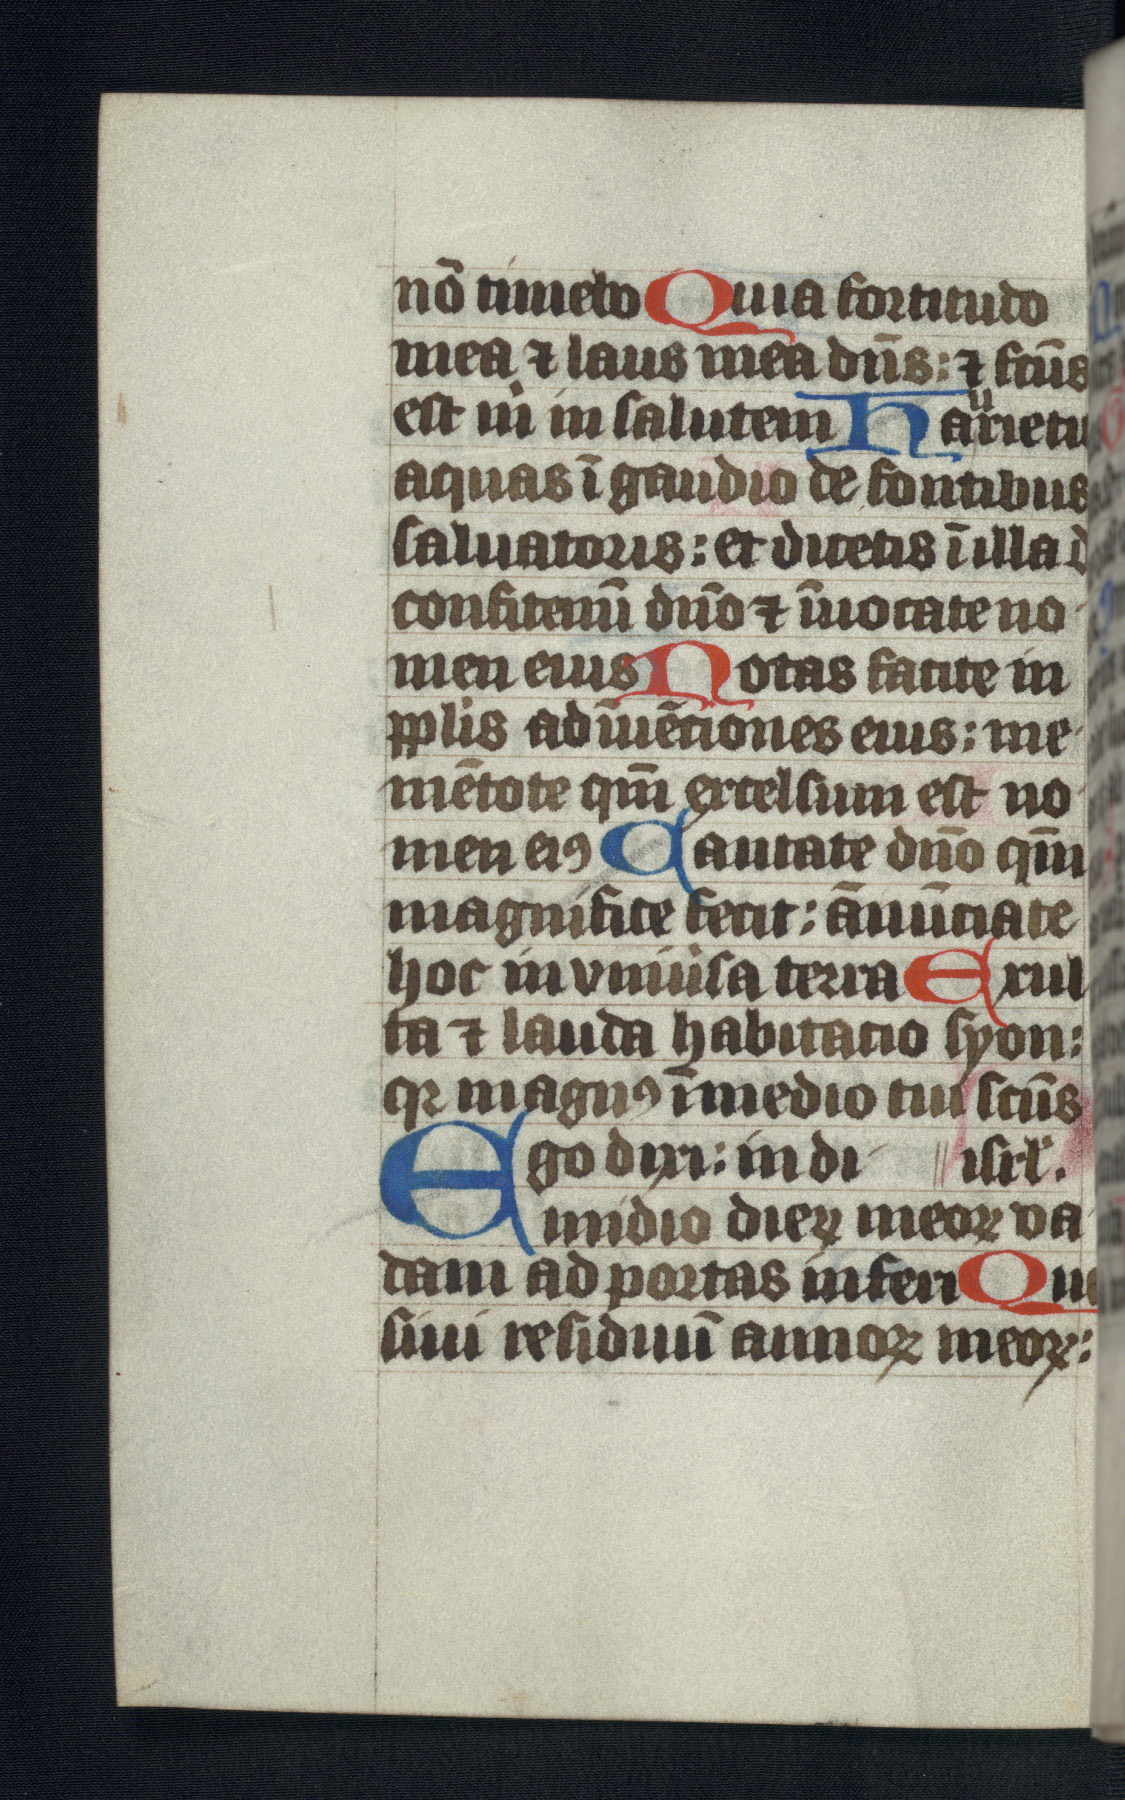 nō timebo Quia fortitudo
mea ⁊ laus mea dn̄s: ⁊ fcūs
est m̄ in salutem Haurietis
aquas ī gaudio de fontibus
saluatoris: et dicetis ī illa d
confitemī dn̄o ⁊ īuocate no
men eius Notas facite in
pplis adīuētiones eius: me
mētote qm̄ excelsum est no
men eiꝰ Cantate dn̄o qm̄
magnifice fecit: ānūciate
hoc in vniūsa terra Exul
ta ⁊ lauda habitacio syon:
qꝛ magnꝰ ī medio tui scūs
Ego dixi: in di isrl̄.
midio dieꝝ meoꝝ va
dam ad portas inferi Que
siui residuū annoꝝ meoꝝ: